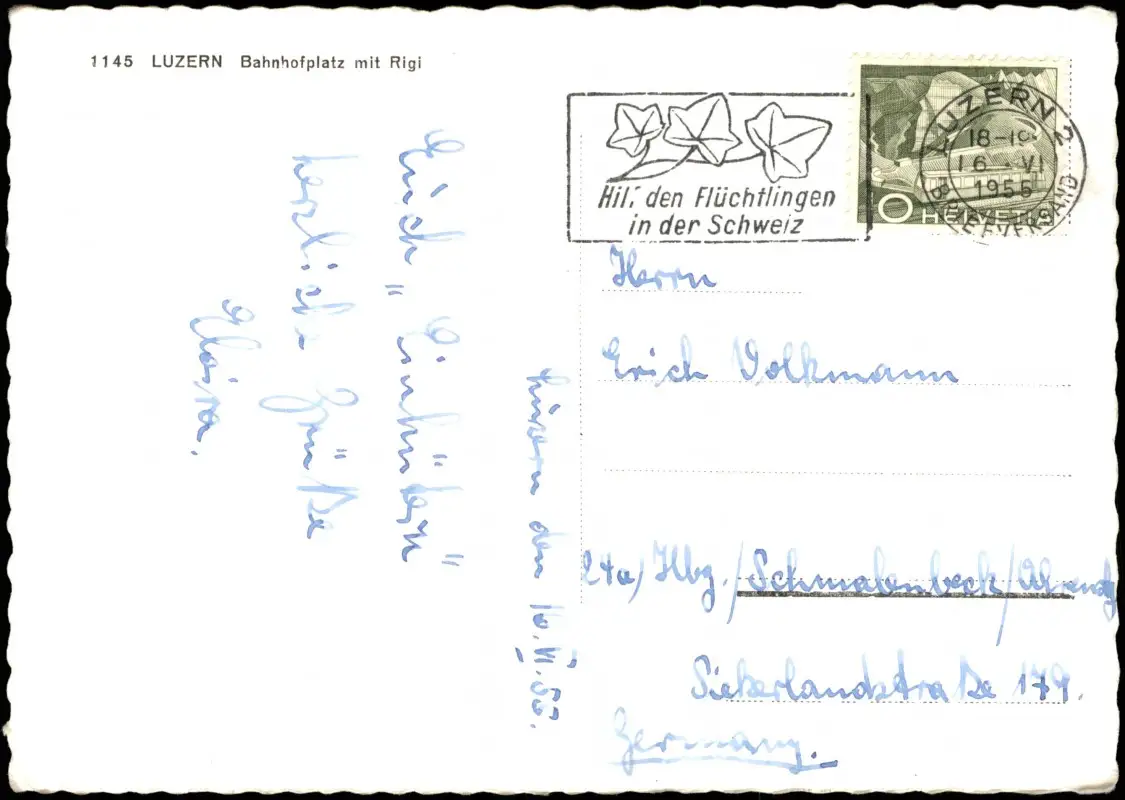 1145 LUZERN Bahnhofplatz mit Rigi
Hilf den Flüchtlingen
in der Schweiz
LUZERN 2
18-19
16.-VI
1955
BRIEFVERSAND
10 HELVETIA
Euch
herzliche Grüße
Luzern den 16.VI.55.
Herrn
Erich Volkmann
24a) Hbg./Schmalenbeck/
Siekerlandstraße 179.
Germany.